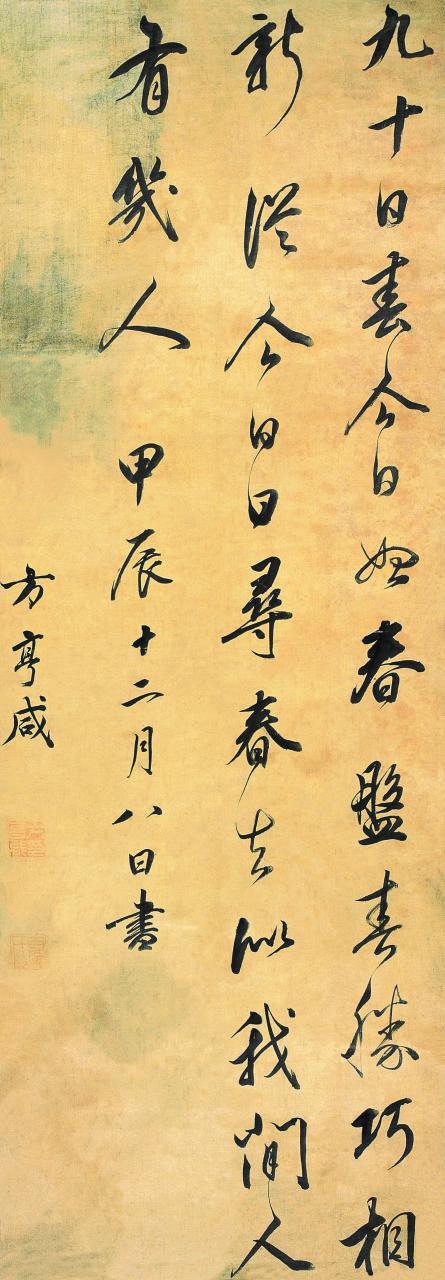 九十日春今日始春盤春勝巧相
新從今日日尋春去似我閒人
有幾人 甲辰十二月八日書
方亨咸